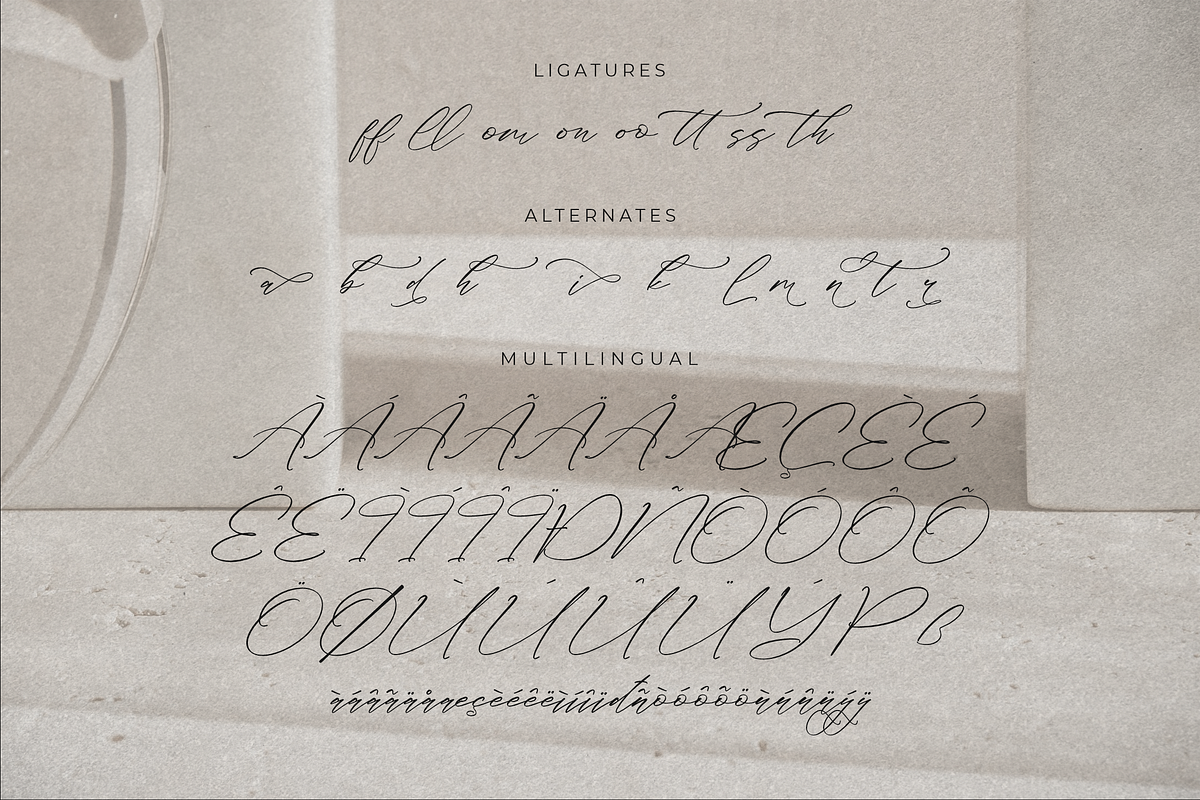 LIGATURES
ff ll om on oo tt ss th
ALTERNATES
a b d h i k l m n t r
MULTILINGUAL
ÀÁÂÃÄÅÆÇÈÉ
ÊËÌÍÎÏÐÑÒÓÔÕ
ÖØÙÚÛÜÝÞß
àáâãäåæçèéêëìíîïðñòóôõöùúûüýÿ